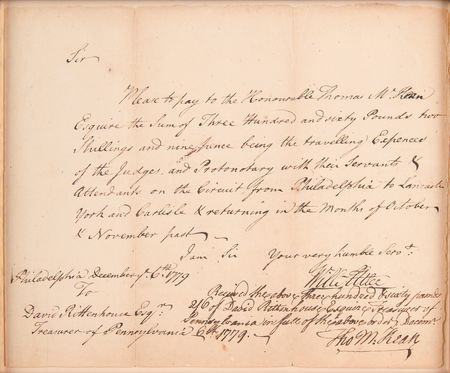 Sir
Please to pay to the Honourable Thomas McKean
Esquire the Sum of Three Hundred and sixty Pounds two
Shillings and nine pence being the travelling Expences
of the Judges, and Protonotary with their Servants &
Attendants on the Circuit from Philadelphia to Lancaster
York and Carlisle & returning in the Months of October
& November past
I am Sir Your very humble Servt.
Philadelphia December 6th 1779
To
David Rittenhouse Esqr.
Treasurer of Pennsylvania
Received the above three hundred & sixty pounds
2/6 of David Rittenhouse Esquire Treasurer of
Pennsylvania in full of the above order Decemr.
6th 1779.
Tho M:Kean